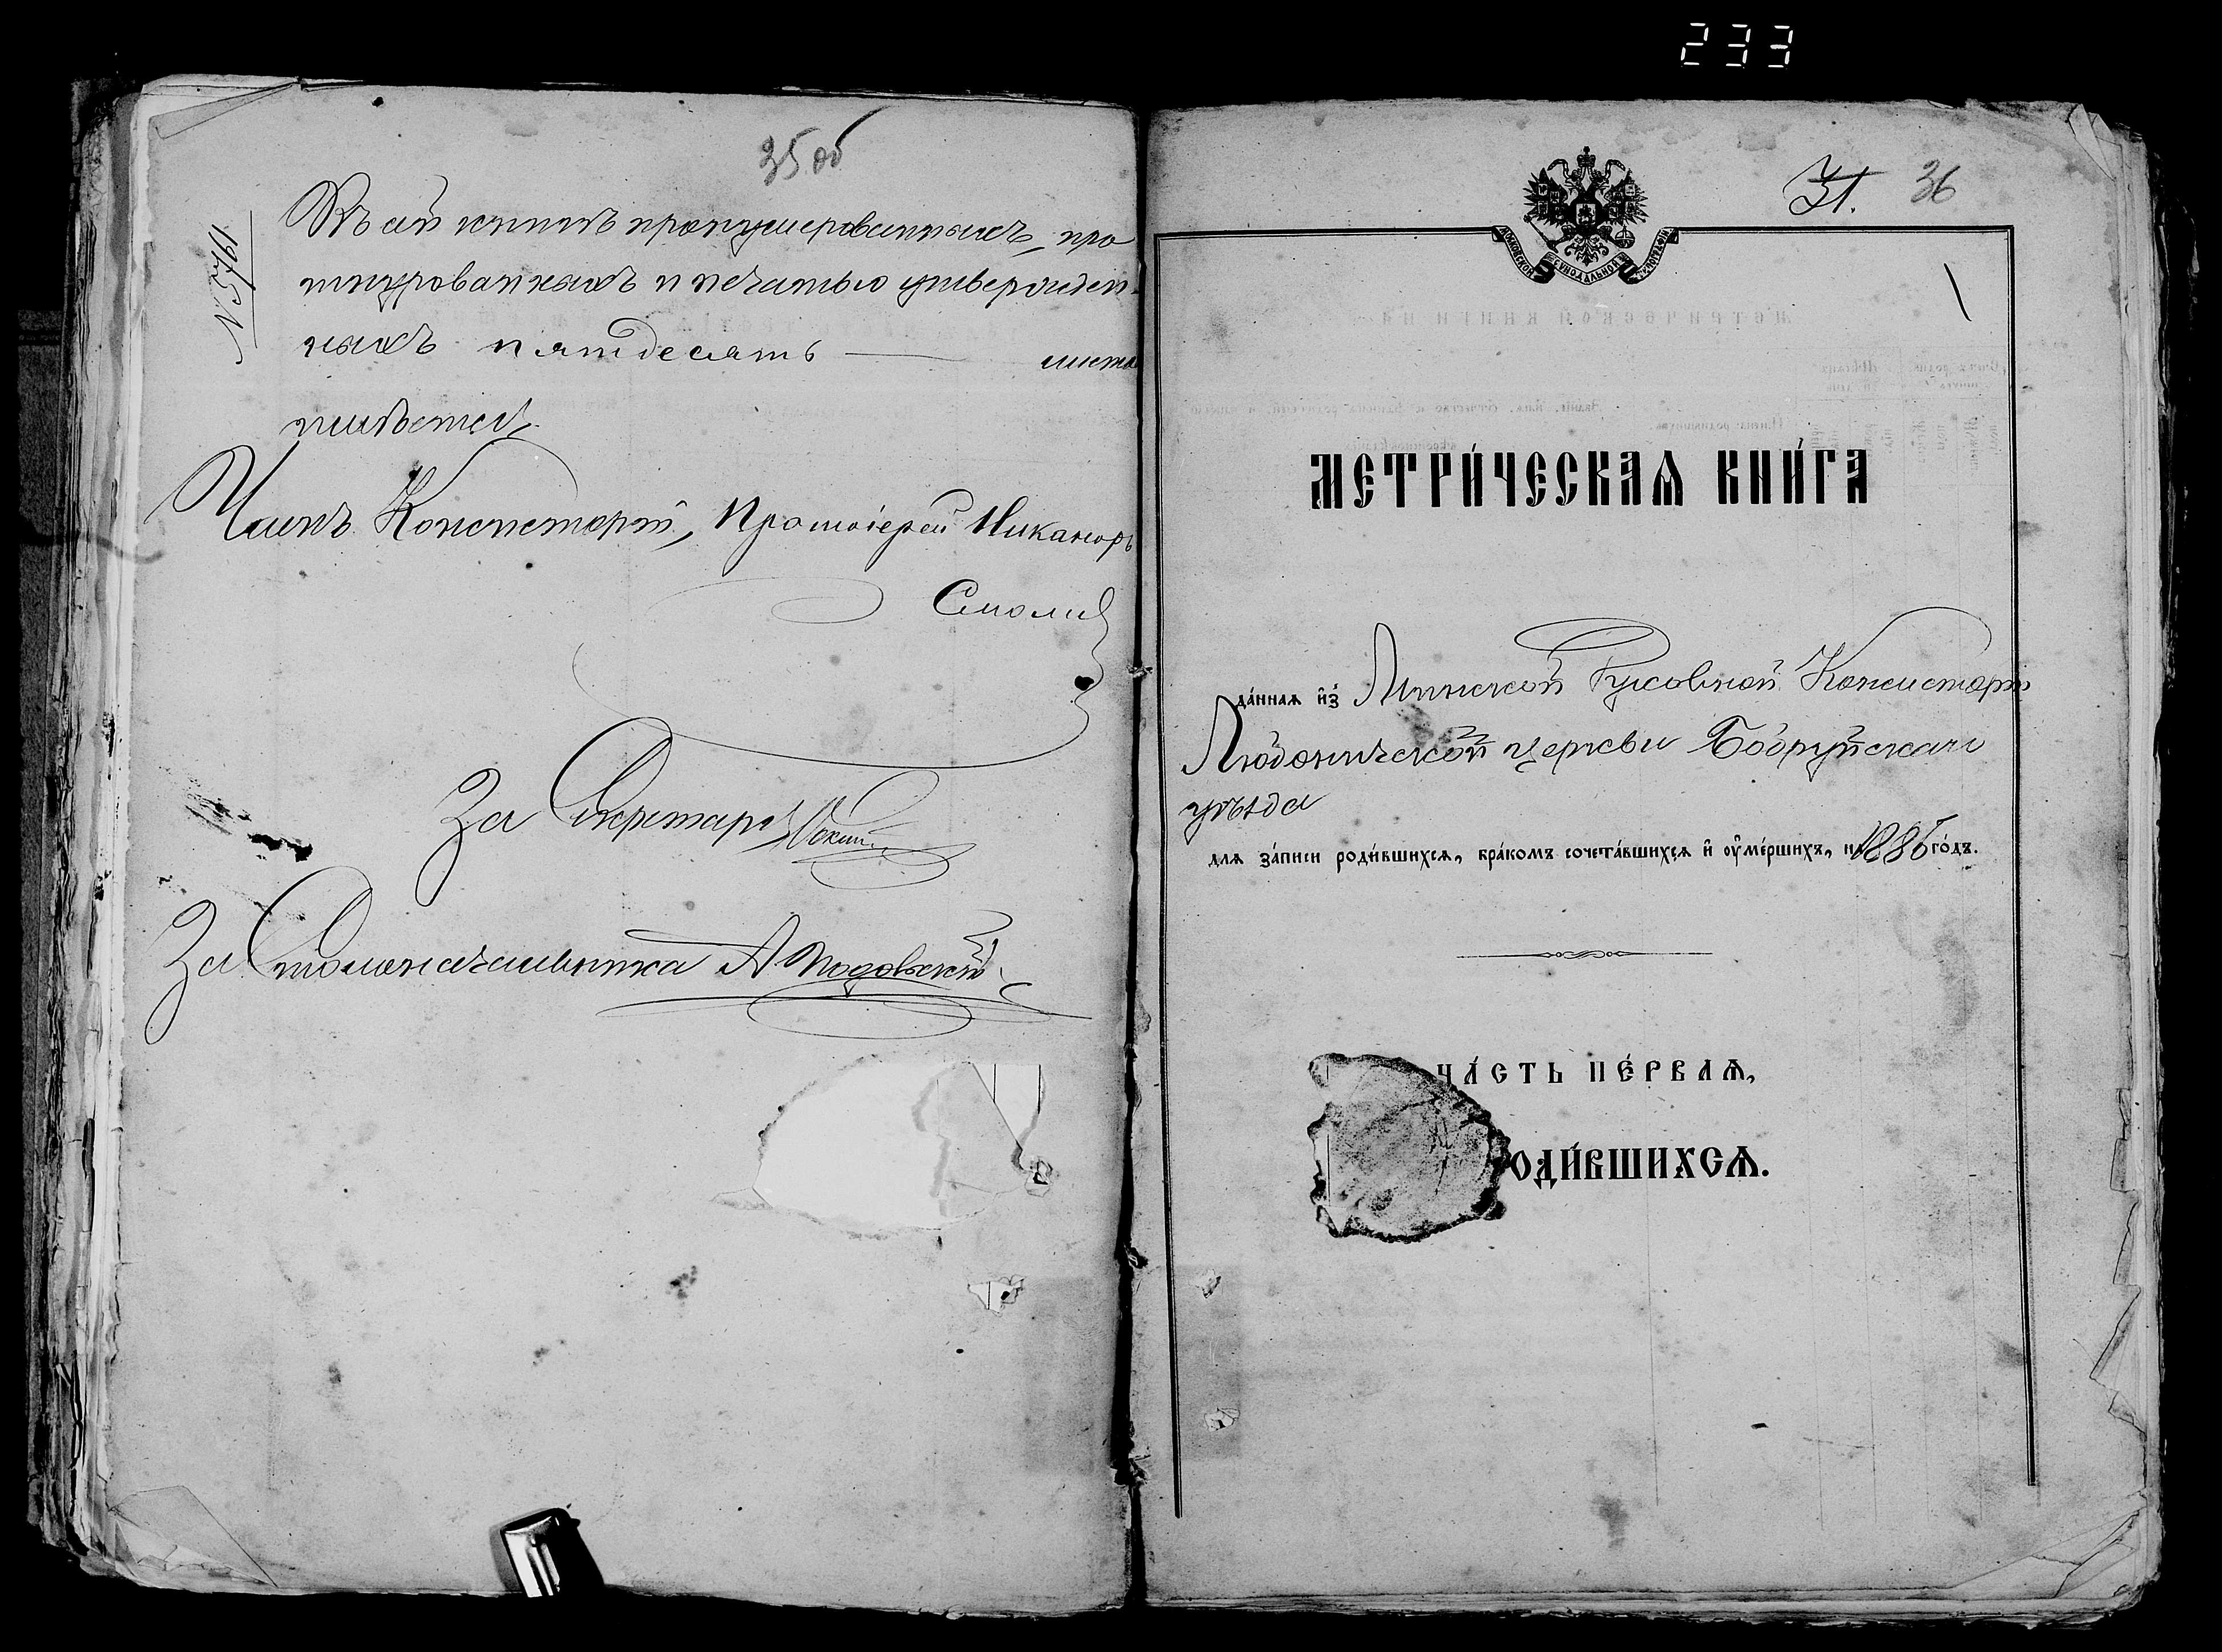 233
35 об
№ 5761.
Въ сей книгѣ пронумерованныхъ, про
шнурованныхъ и печатью утвержден-
ныхъ пятдесятъ — листо
имѣется.
Членъ Консисторіи, Протоіерей Никаноръ
Смолич
За Секретаря
За Столоначальника А
31. 36
МОСКОВСКОЙ СѴНОДАЛЬНОЙ ТѴПОГРАФІИ
1
МЕТРИ́ЧЕСКАѦ КНИ́ГА
да́ннаѧ и҆з̾ Минской Духовной Консисторіи
Любоничской церкви Бобруйскаго
уѣзда
для за́писи роди́вшихсѧ, бра́комъ сочета́вшихсѧ и҆ оу҆ме́ршихъ, на 1886 го́дъ.
ЧА́СТЬ ПЕ́РВАѦ,
ОДИ́ВШИХСѦ.